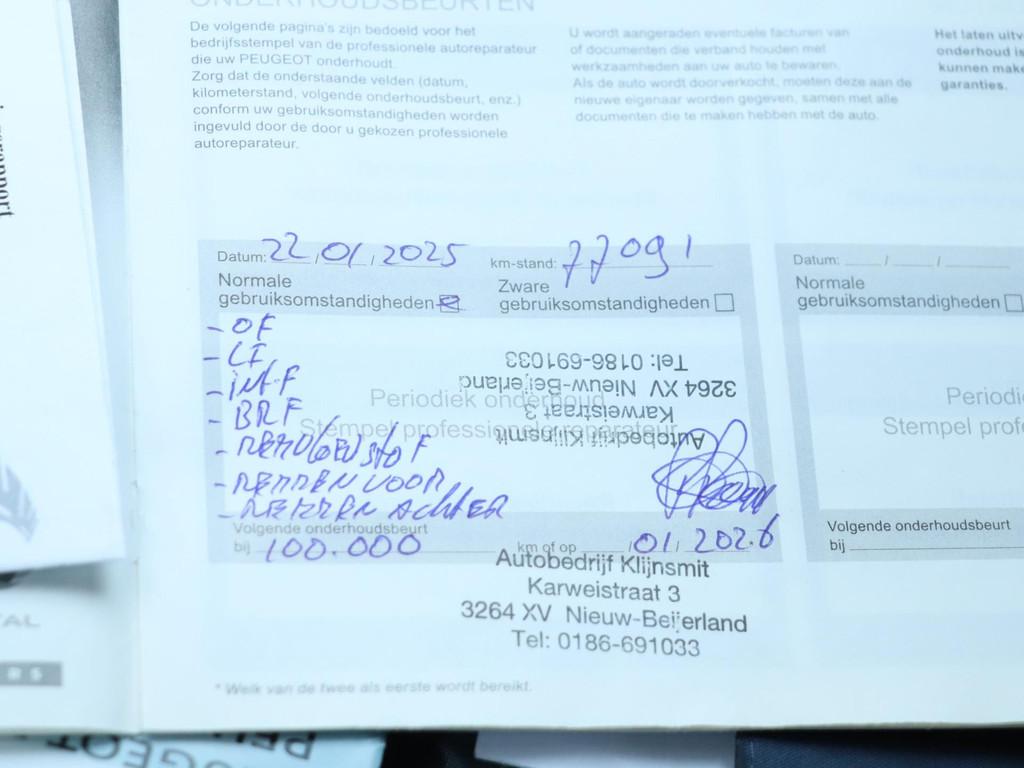 ONDERHOUDSBEURTEN
De volgende pagina's zijn bedoeld voor het
bedrijfsstempel van de professionele autoreparateur
die uw PEUGEOT onderhoudt.
Zorg dat de onderstaande velden (datum,
kilometerstand, volgende onderhoudsbeurt, enz.)
conform uw gebruiksomstandigheden worden
ingevuld door de door u gekozen professionele
autoreparateur.
U wordt aangeraden eventuele facturen van
of documenten die verband houden met
werkzaamheden aan uw auto te bewaren.
Als de auto wordt doorverkocht, moeten deze aan de
nieuwe eigenaar worden gegeven, samen met alle
documenten die te maken hebben met de auto.
Het laten
onderhoud
kunnen
garanties.
Datum: 22/01/2025 km-stand: 77091
Normale
gebruiksomstandigheden
Zware
gebruiksomstandigheden
- OF
- LI
- INT.F
- BRF
- REMVLOEISTOF
- REMMEN VOOR
- REMMEN ACHTER
Periodiek onderhoud
Stempel professionele reparateur
Autobedrijf Klijnsmit
Karweistraat 3
3264 XV Nieuw-Beijerland
Tel: 0186-691033
Volgende onderhoudsbeurt
bij 100.000 km of op 01/2026
Autobedrijf Klijnsmit
Karweistraat 3
3264 XV Nieuw-Beijerland
Tel: 0186-691033
* Welk van de twee als eerste wordt bereikt.
Datum: / /
Normale
gebruiksomstandigheden
Volgende onderhoudsbeurt
bij
PEUGEOT